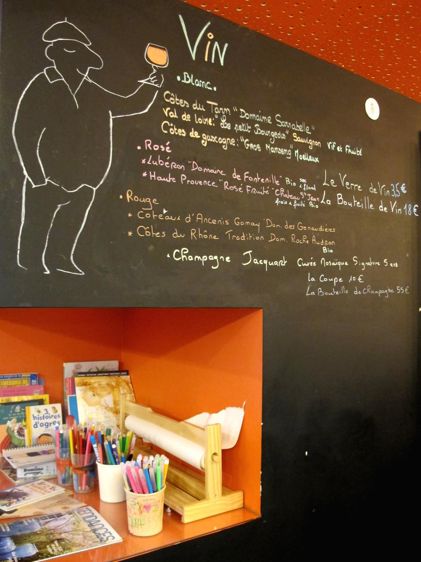 Vin
• Blanc
Côtes du Tarn "Domaine Sarrabelle"
Val de Loire: "Le petit Bourgeois" Sauvignon Vif et Fruité
Côtes de gascogne: "Gros Manseng" Moelleux
• Rosé
* Lubéron "Domaine de Fonteneille" Bio
* Haute Provence "Rosé Fruité" Château St Jean
Bio
Le Verre de Vin 3,5€
La Bouteille de Vin 18€
• Rouge
* Coteaux d'Ancenis Gamay Dom. des Genaudières
* Côtes du Rhône Tradition Dom. Roche Audran
Bio
• Champagne Jacquart Cuvée Mosaïque Signature 5 ans
la Coupe 10€
La Bouteille de Champagne 55€
3 histoires d'ogres